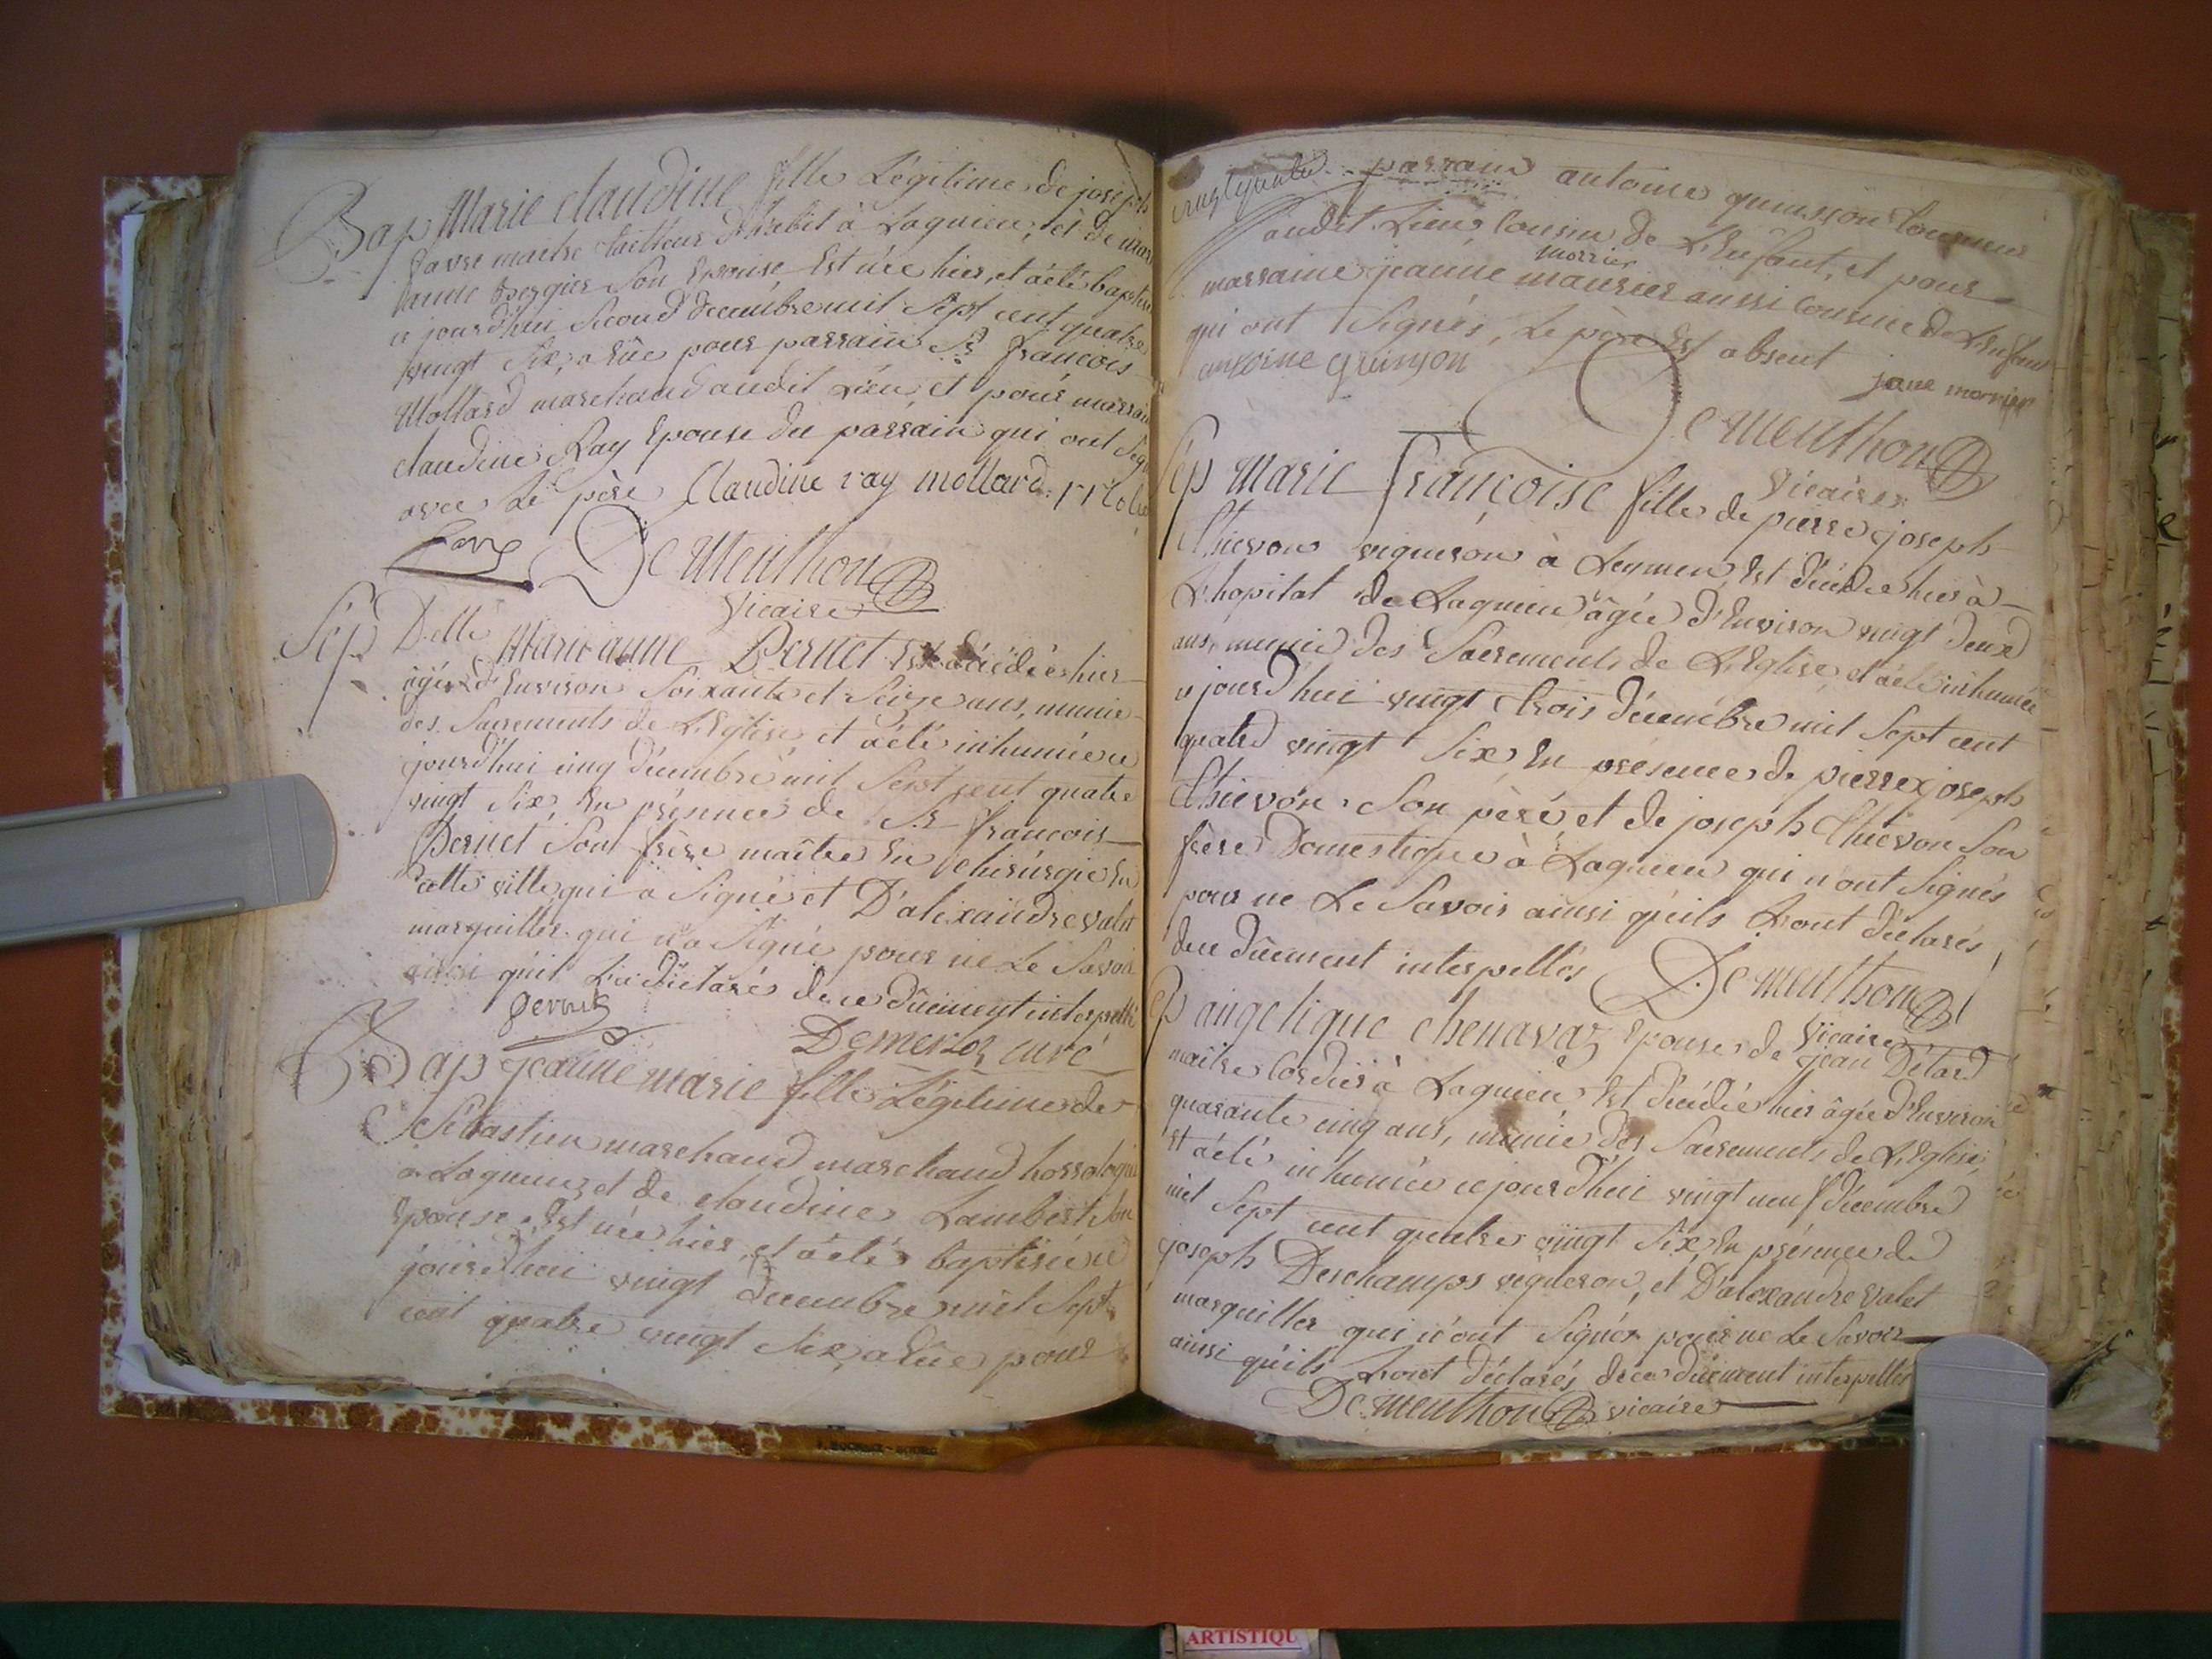 Bap Marie claudine fille Légitime de joseph
favre maitre tailleur d'habit à Lagnieu, et de mari
anne Bergier Son Epouse Est née hier, et a été baptisé
ce jourd'hui Second decembre mil Sept cent quatre
vingt Six, a Eûe pour parrain Sr françois
Mollard marchand audit Lieu, et pour marrain
claudine Ray Epouse du parrain qui ont Sign
avec Le père Claudine ray mollard
favre De Menthon
Vicaire
Sep Delle Marie anne Pernet Est décédée hier
agée d'Environ Soixante et Seize ans, munie
des Sacrements de L'Eglise et a été inhumée ce
jourd'hui cinq décembre mil Sept cent quatre
vingt Six, En présence de Sr françois
Pernet Son frère maître En chirurgie En
cette ville, qui a Signé et D'alexandre valet
marguiller qui n'a Signé pour ne Le Savoir
ainsi qu'il L'a déclaré de ce dûement interpellé
Pernet
Demerloz curé
Bap jeanne marie fille Légitime de
Sébastien marchand marchand horsologeur
a Lagnieu, et de claudine Lambert Son
Epouse, Est née hier, et a été baptisée ce
jourd'hui vingt decembre mil Sept
cent quatre vingt Six, a Eûe pour
parrain antoine quinson
audit Lieu, Cousin de L'Enfant, et pour
morrier
marraine jeanne maurier aussi Cousine de L'Enfant
qui ont Signés, Le père Est absent
antoine quinson jane morrier
De Menthon
Vicaire
Sep Marie françoise fille de pierre joseph
Thievon vigneron à Leymen, Est décédée hier à
L'hopital de Lagnieu âgée d'Environ vingt deux
ans, munie des Sacrements de L'Eglise, et a été inhumée
ce jourd'hui vingt trois décembre mil Sept cent
quatre vingt Six, En présence de pierre joseph
Thievon Son père et de joseph Thievon Son
frère Domestique à Lagnieu qui n'ont Signés
pour ne Le Savoir ainsi qu'ils L'ont déclarés
de ce dûement interpellés De Menthon
Vicaire
Sep angelique chenavaz Epouse de jean Détard
maître Cordier à Lagnieu Est décédée hier âgée d'Environ
quarante cinq ans, munie des Sacrements de L'Eglise,
Et a été inhumée ce jourd'hui vingt neuf décembre
mil Sept cent quatre vingt Six, En présence de
joseph Deschamps vigneron, et D'alexandre valet
marguiller qui n'ont Signés pour ne Le Savoir
ainsi qu'ils L'ont déclarés de ce dûement interpellés
De Menthon vicaire
ARTISTIQU